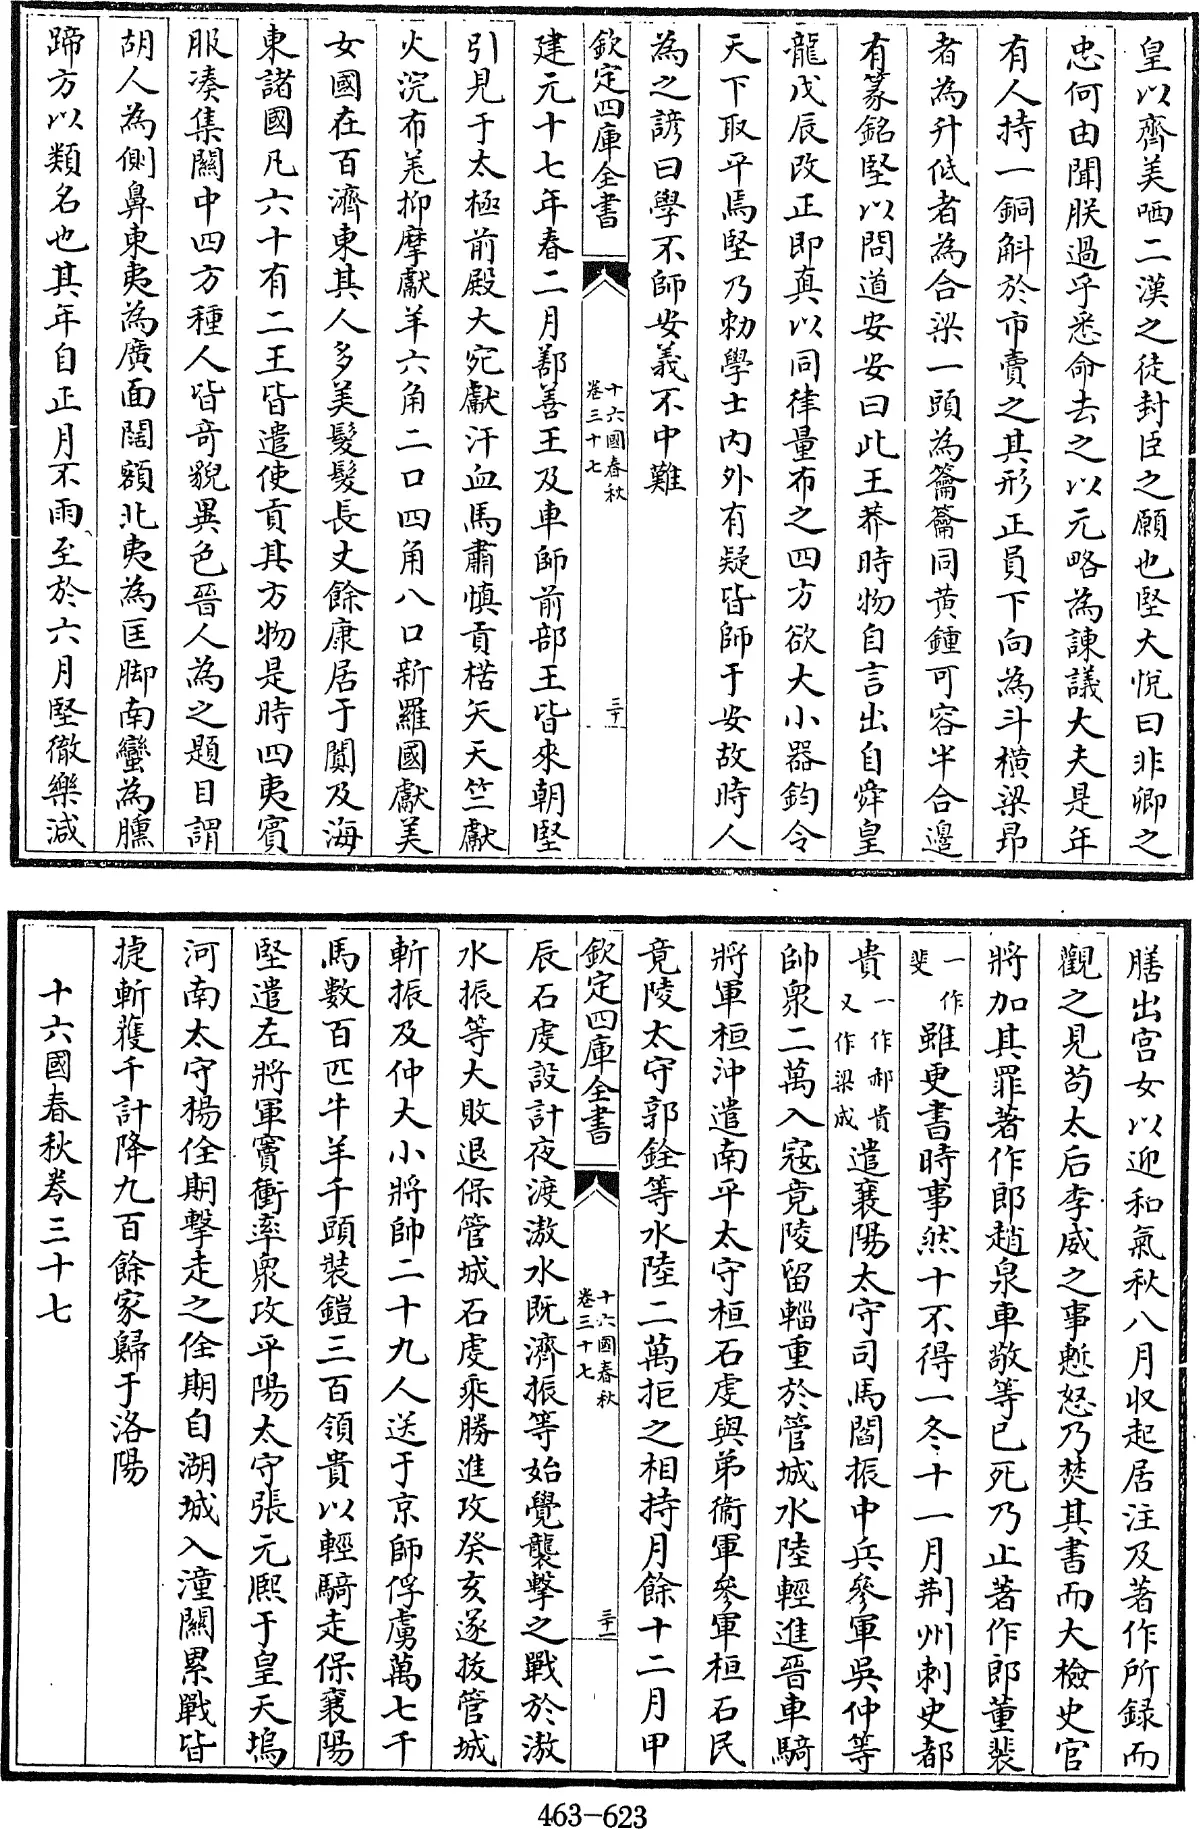 皇以齊美哂二漢之徒封臣之願也堅大悅曰非卿之
忠何由聞朕過乎悉命去之以元略為諫議大夫是年
有人持一銅斛於市賣之其形正員下向為斗橫梁昂
者為升低者為合梁一頭為籥籥同黃鍾可容半合邊
有篆銘堅以問道安安曰此王莽時物自言出自舜皇
龍戊辰改正即真以同律量布之四方欲大小器鈞令
天下取平焉堅乃勅學士內外有疑皆師于安故時人
為之諺曰學不師安義不中難
欽定四庫全書
十六國春秋
卷三十七
三十
建元十七年春二月鄯善王及車師前部王皆來朝堅
引見于太極前殿大宛獻汗血馬肅慎貢楛矢天竺獻
火浣布羌抑摩獻羊六角二口四角八口新羅國獻美
女國在百濟東其人多美髮髮長丈餘康居于闐及海
東諸國凡六十有二王皆遣使貢其方物是時四夷賓
服湊集關中四方種人皆奇貌異色晉人為之題目謂
胡人為側鼻東夷為廣面闊額北夷為匡脚南蠻為臕
蹄方以類名也其年自正月不雨至於六月堅徹樂減
膳出宮女以迎和氣秋八月收起居注及著作所録而
觀之見苟太后李威之事慙怒乃焚其書而大檢史官
將加其罪著作郎趙泉車敬等已死乃止著作郎董裴
一作
斐雖更書時事然十不得一冬十一月荆州刺史都
貴一作郝貴
又作梁成遣襄陽太守司馬閻振中兵參軍吳仲等
帥衆二萬入寇竟陵留輜重於管城水陸輕進晉車騎
將軍桓沖遣南平太守桓石虔與弟衛軍參軍桓石民
竟陵太守郭銓等水陸二萬拒之相持月餘十二月甲
欽定四庫全書
十六國春秋
卷三十七
三十一
辰石虔設計夜渡漖水既濟振等始覺襲擊之戰於漖
水振等大敗退保管城石虔乘勝進攻癸亥遂拔管城
斬振及仲大小將帥二十九人送于京師俘虜萬七千
馬數百匹牛羊千頭裝鎧三百領貴以輕騎走保襄陽
堅遣左將軍竇衝率衆攻平陽太守張元熙于皇天塢
河南太守楊佺期擊走之佺期自湖城入潼關累戰皆
捷斬獲千計降九百餘家歸于洛陽
十六國春秋卷三十七
463-623